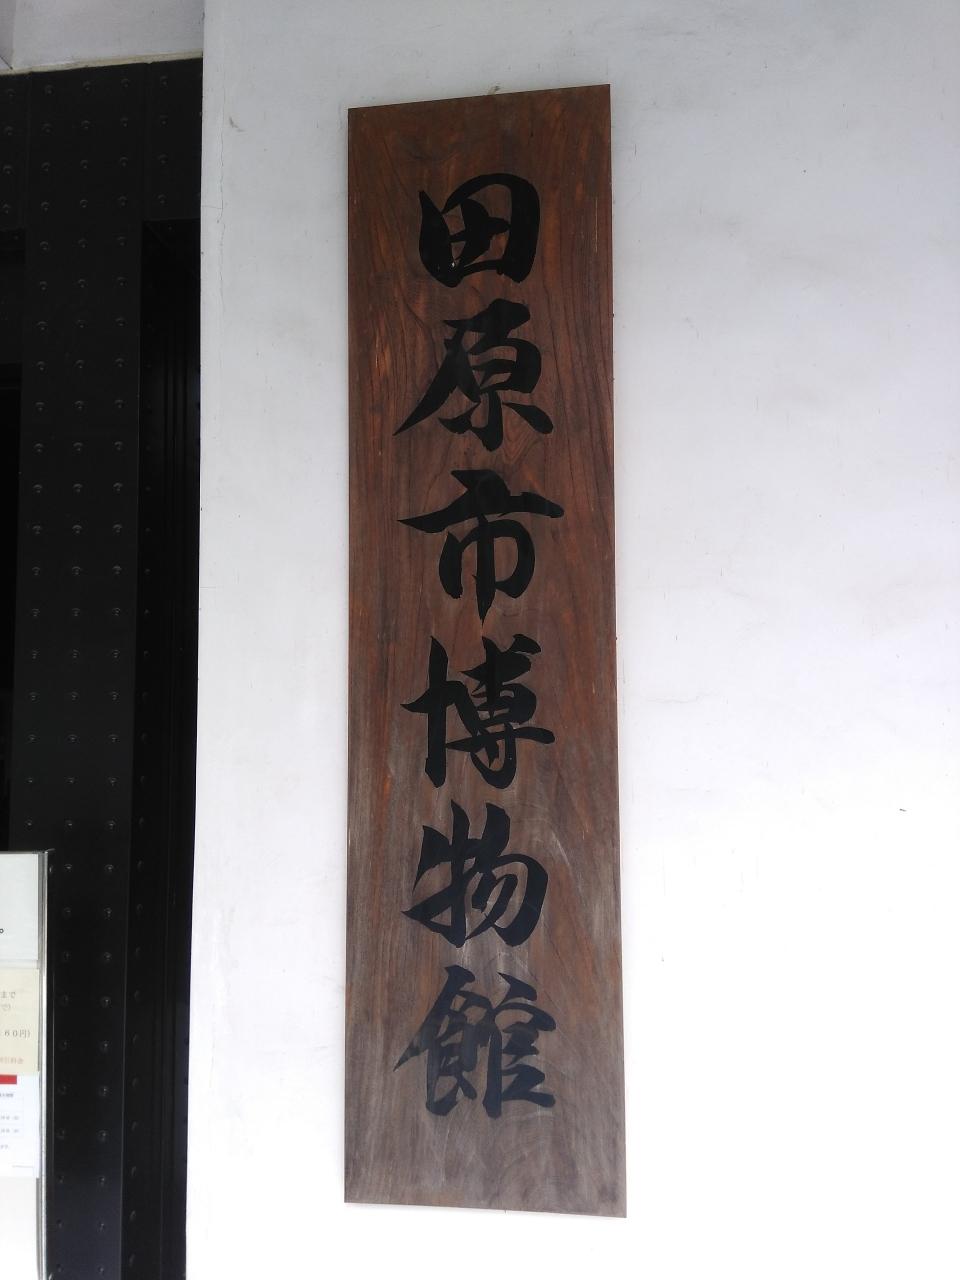 田原市博物館
まで
60円)